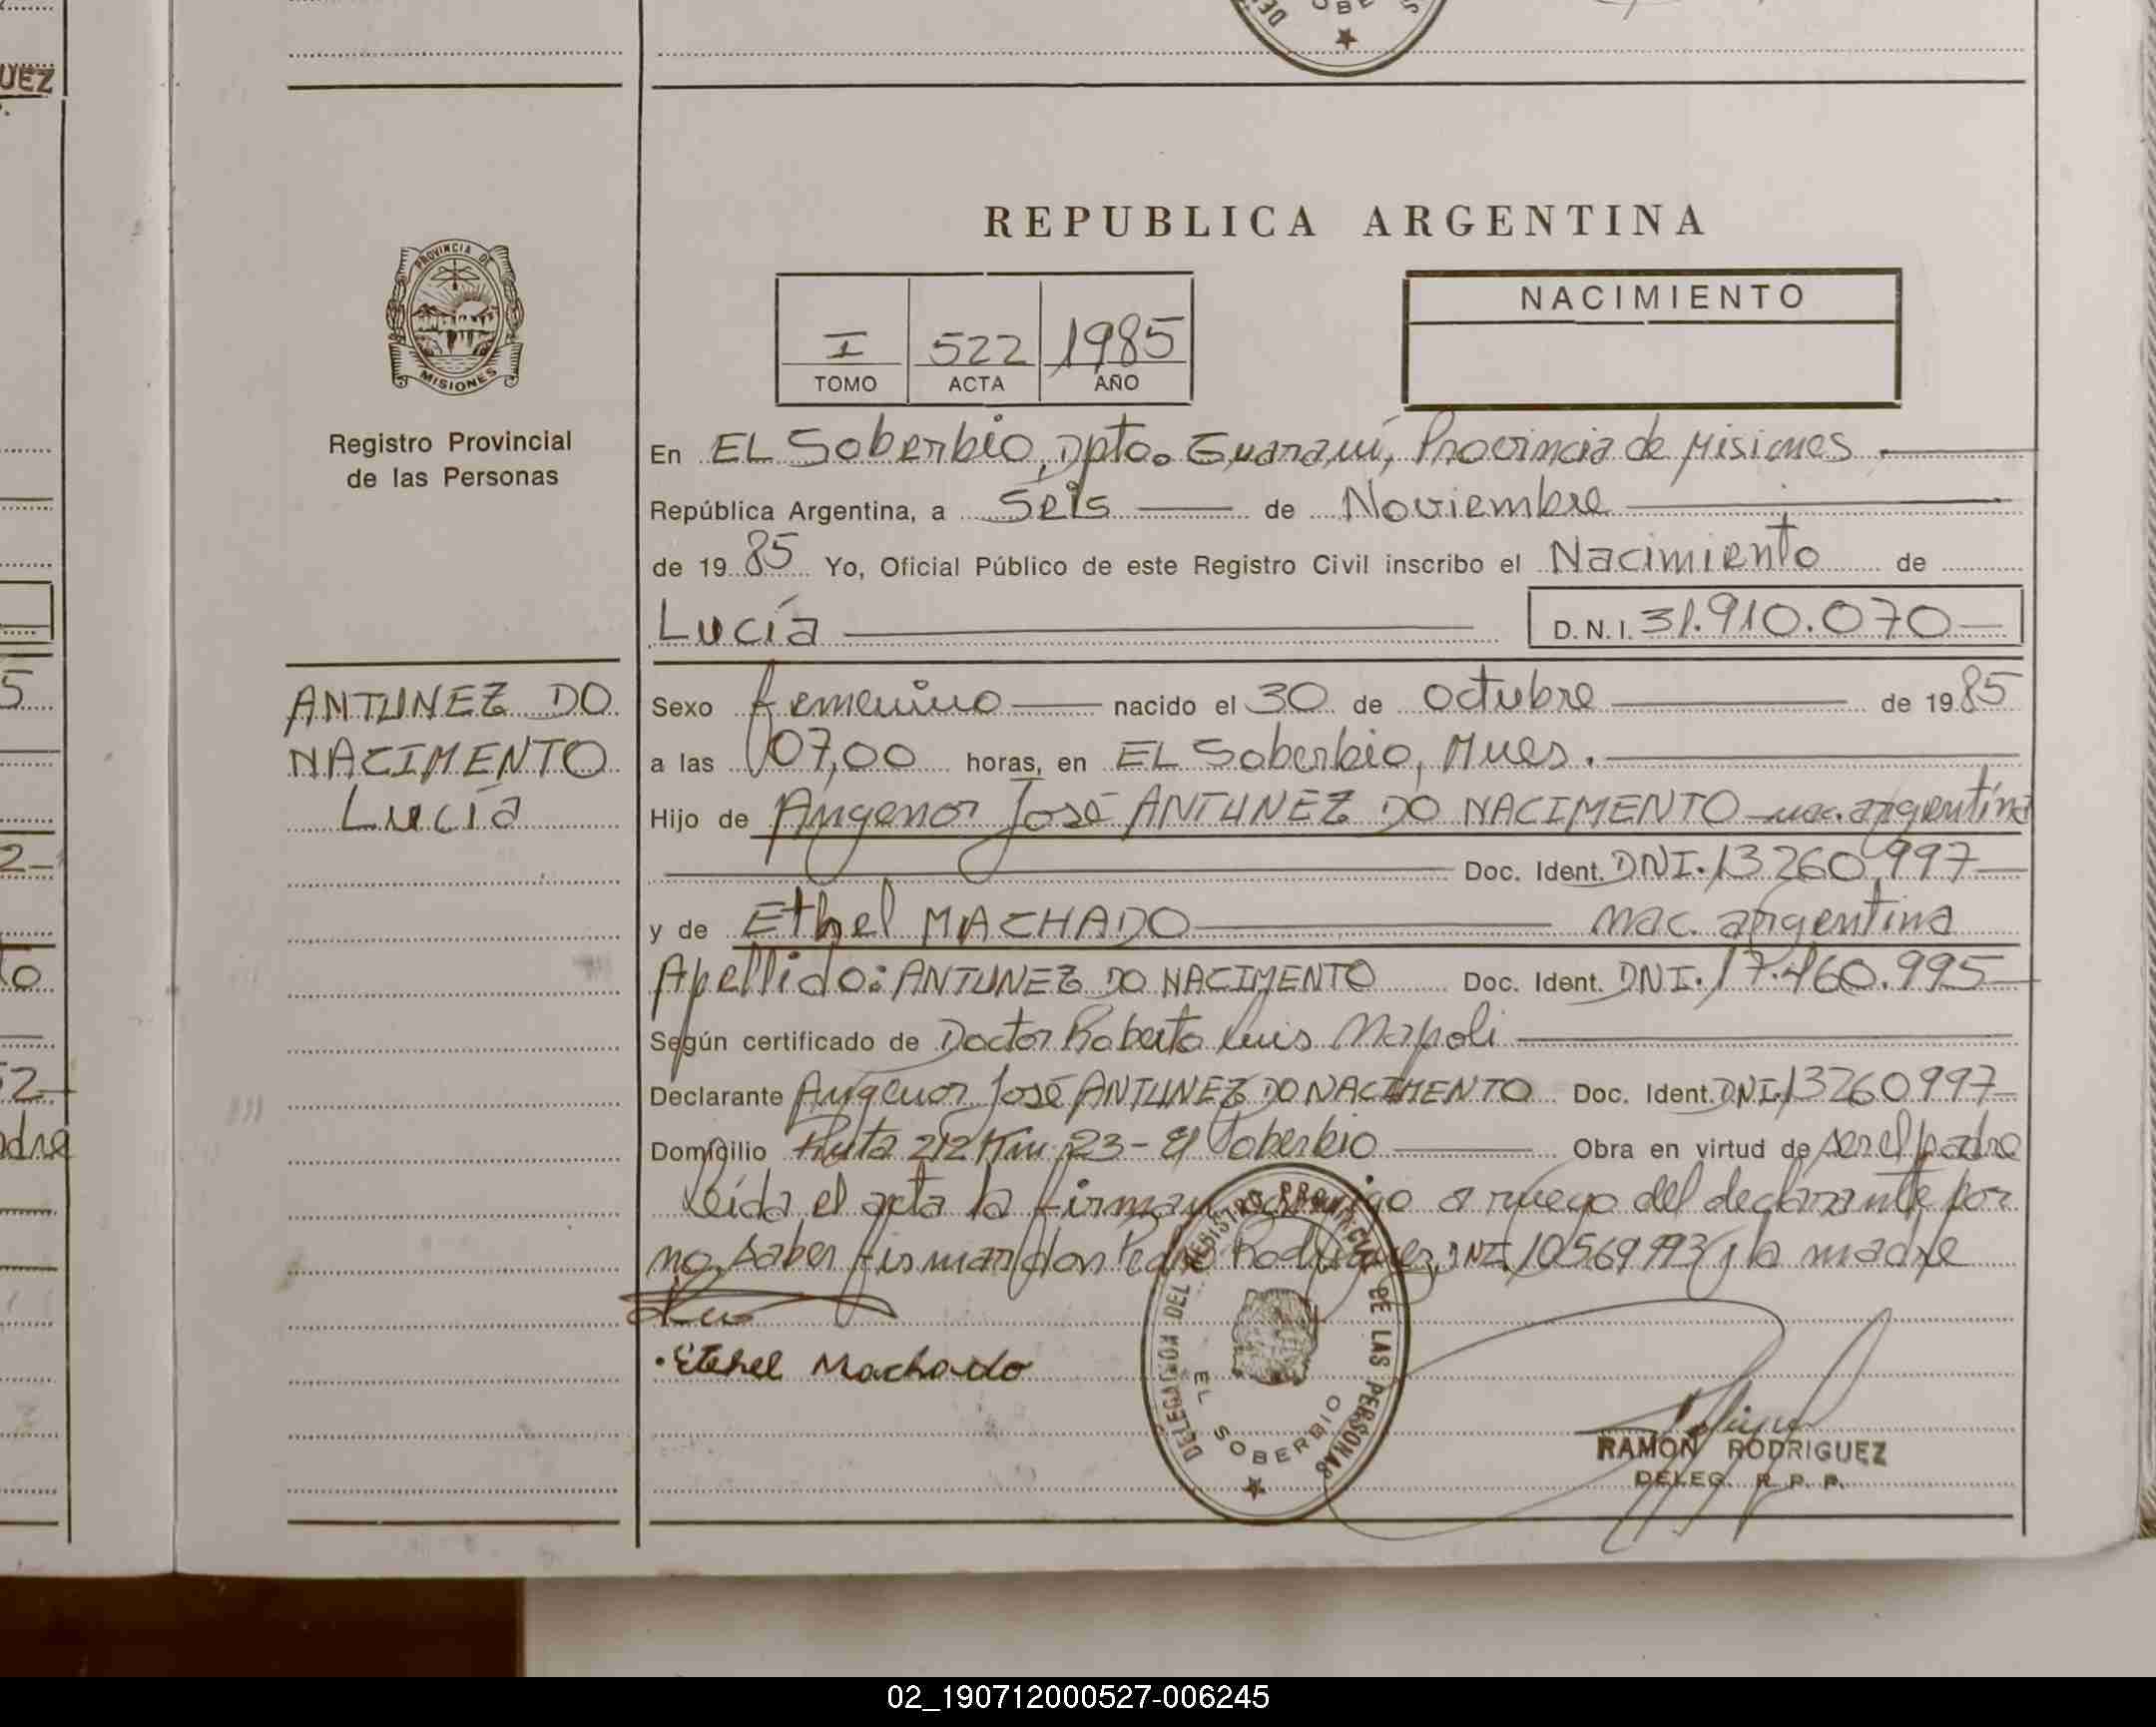 UEZ
REPUBLICA ARGENTINA
PROVINCIA DE
MISIONES
Registro Provincial
de las Personas
I 522 1985
TOMO ACTA AÑO
NACIMIENTO
En EL Soberbio, Dpto. Guaraní, Provincia de Misiones.
República Argentina, a Seis de Noviembre
de 1985 Yo, Oficial Público de este Registro Civil inscribo el Nacimiento de
Lucía D.N.I. 31.910.070
ANTUNEZ DO
NACIMENTO
Lucía
Sexo femenino nacido el 30 de octubre de 1985
a las 07,00 horas, en EL Soberbio, Mnes.
Hijo de Angenor José ANTUNEZ DO NACIMENTO nac. argentina
Doc. Ident. DNI. 13260.997
y de Ethel MACHADO nac. argentina
Apellido: ANTUNEZ DO NACIMENTO Doc. Ident. DNI. 17.460.995
Según certificado de Doctor Roberto Luis Napoli
Declarante Angenor José ANTUNEZ DO NACIMENTO Doc. Ident. DNI. 13260997
Domicilio Ruta 212 Km 23 - El Soberbio Obra en virtud de ser el padre
Leída el acta la firman conmigo a ruego del declarante por
no saber firmar don Pedro Rodriguez, DNI. 10569993 y la madre
Etehel Machado
DELEGACION DEL REGISTRO PROVINCIAL DE LAS PERSONAS
EL SOBERBIO
RAMON RODRIGUEZ
DELEG. R. P. P.
02_190712000527-006245